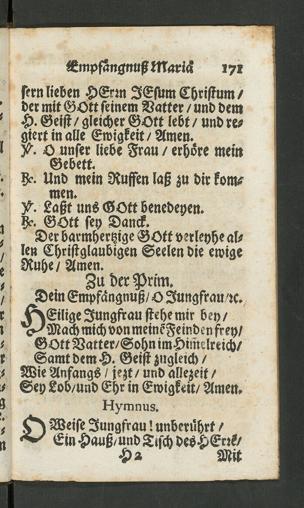 Empfängnuß Mariä 171
sern lieben HErꝛn JEsum Christum /
der mit GOtt seinem Vatter / und dem
H. Geist / gleicher GOtt lebt / und re-
giert in alle Ewigkeit / Amen.
℣. O unser liebe Frau / erhöre mein
Gebett.
℟. Und mein Ruffen laß zu dir kom-
men.
℣. Laßt uns GOtt benedeyen.
℟. GOtt sey Danck.
Der barmhertzige GOtt verleyhe al-
len Christglaubigen Seelen die ewige
Ruhe / Amen.
Zu der Prim.
Dein Empfängnuß / O Jungfrau ꝛc.
HEilige Jungfrau stehe mir bey /
Mach mich von meinē Feinden frey /
GOtt Vatter / Sohn im Him̄elreich /
Samt dem H. Geist zugleich /
Wie Anfangs / jezt / und allezeit /
Sey Lob / und Ehr in Ewigkeit / Amen.
Hymnus.
O Weise Jungfrau ! unberührt /
Ein Hauß / und Tisch des HErꝛn /
H 2 Mit